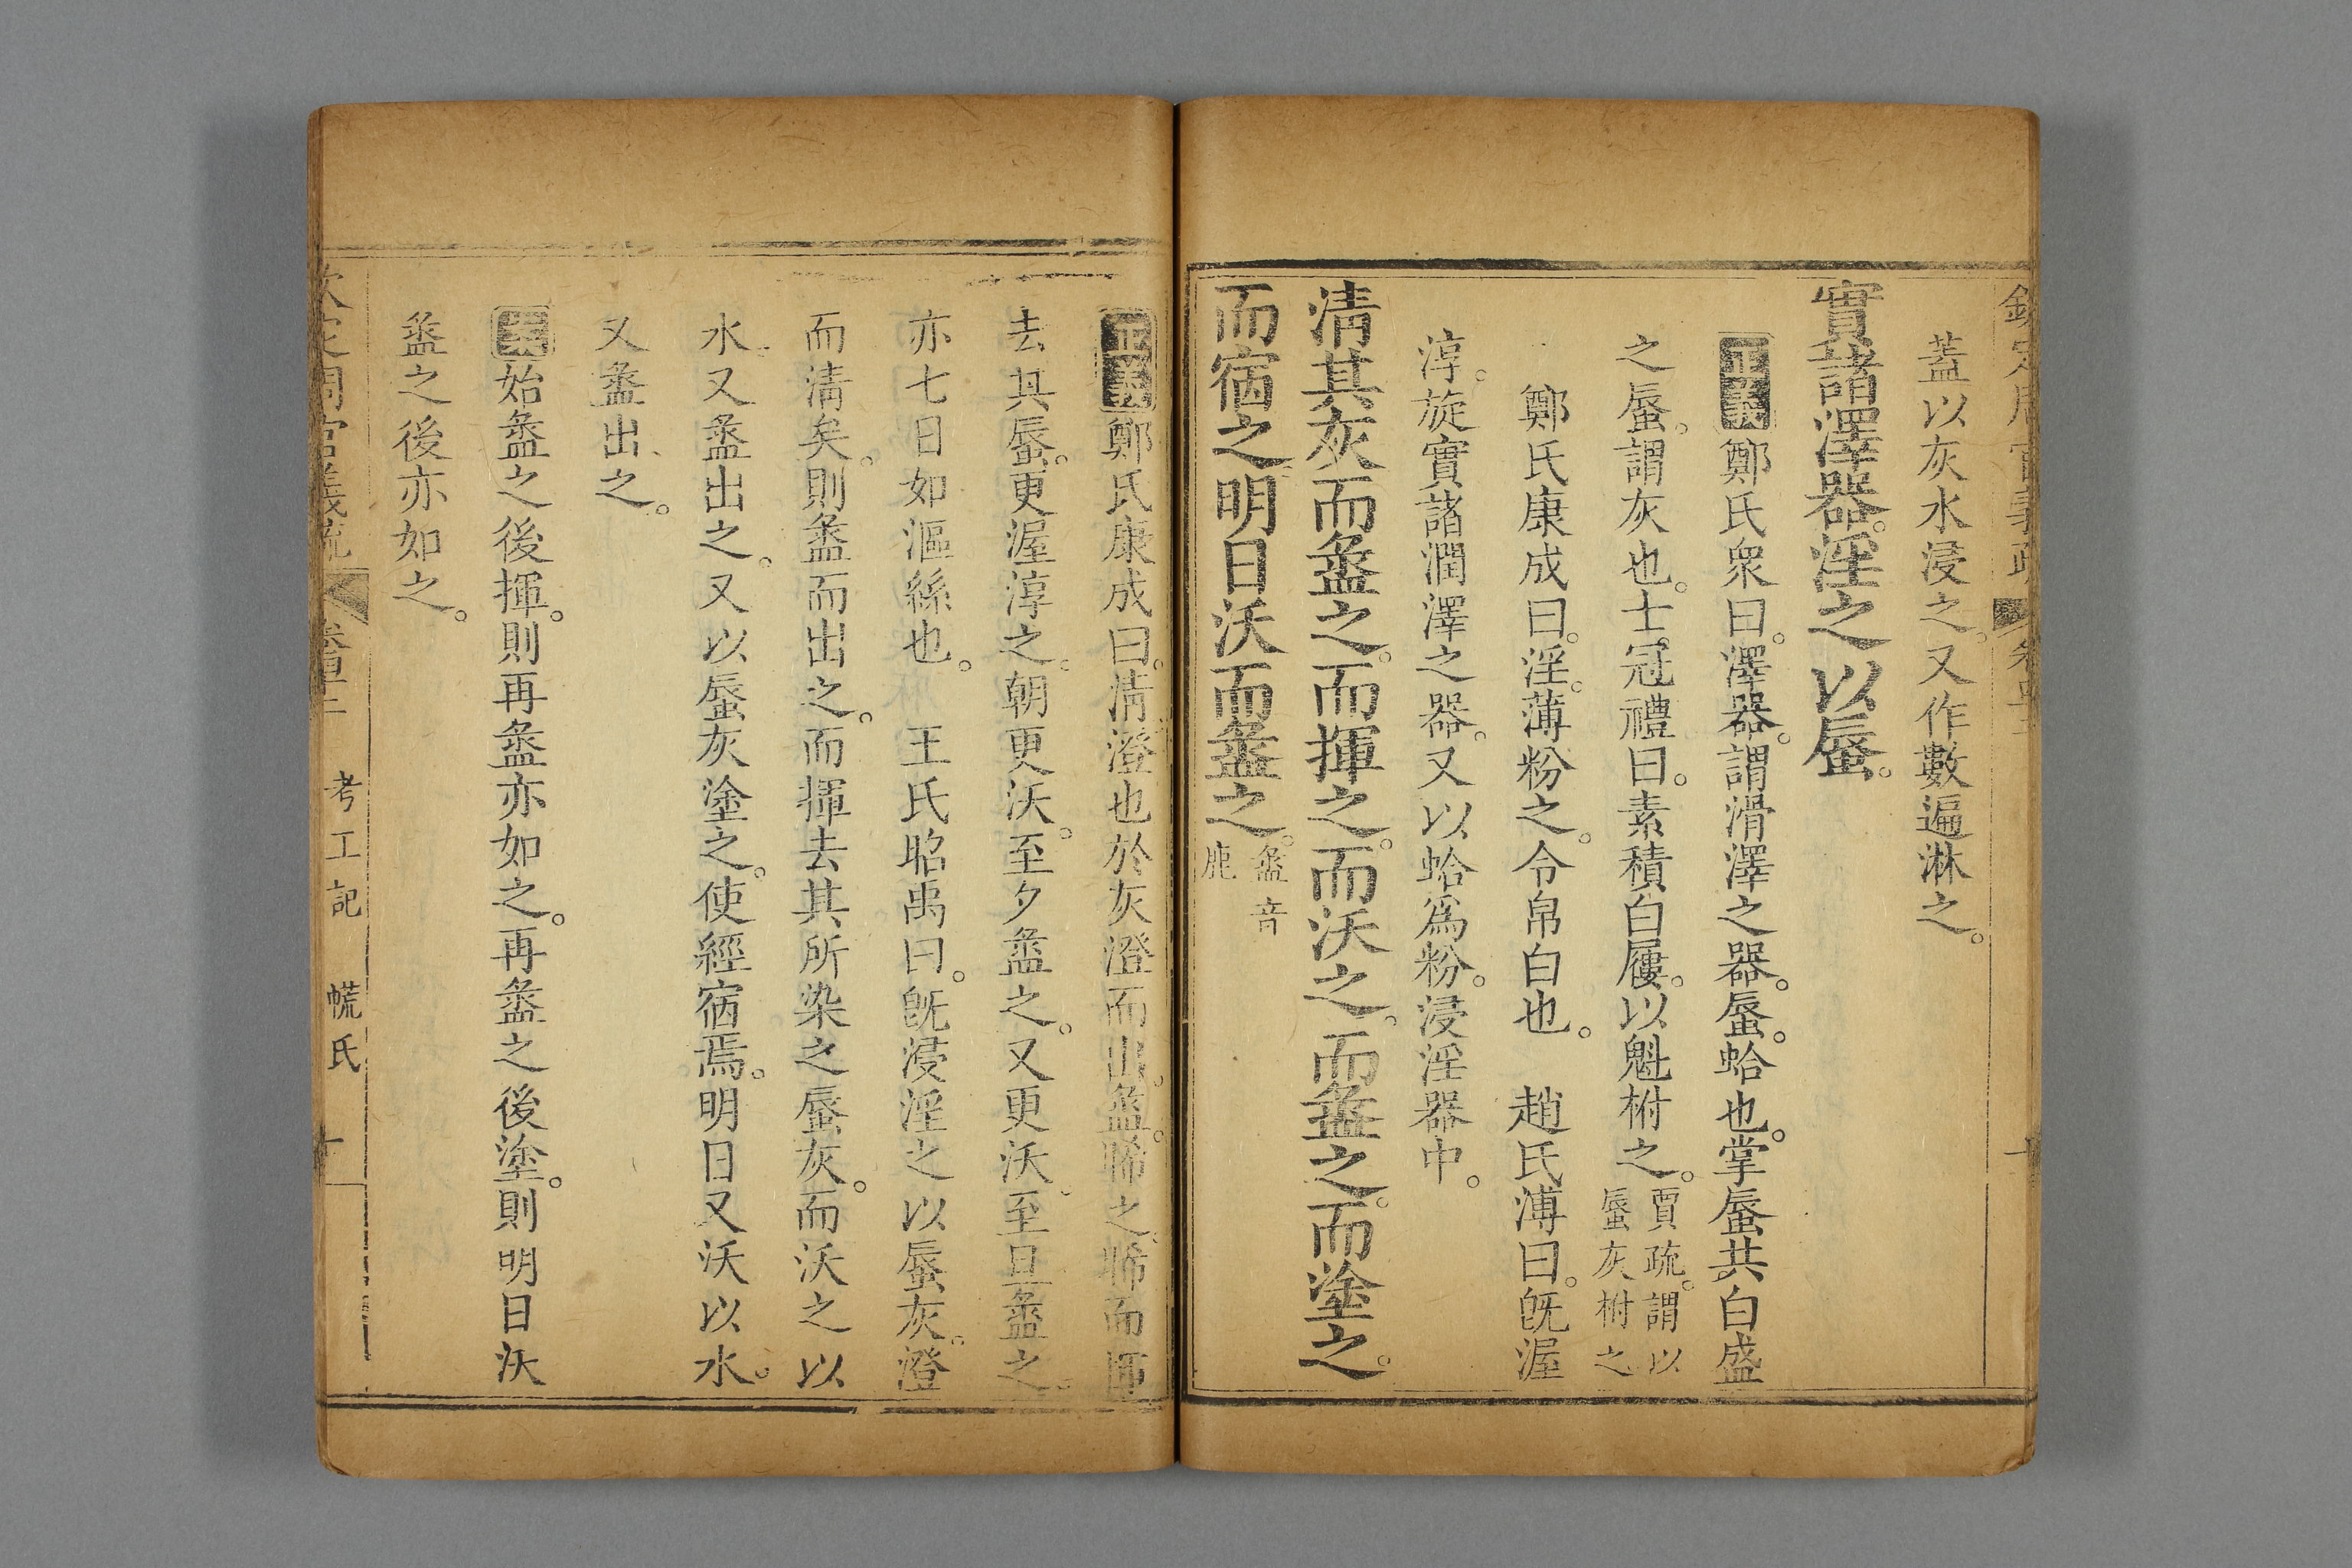 蓋以灰水浸之。又作數遍淋之。
實諸澤器。淫之以蜃。
正義鄭氏衆曰。澤器。謂滑澤之器。蜃。蛤也。掌蜃共白盛
之蜃。謂灰也。士冠禮曰。素積白屨。以魁柎之。賈疏。謂以
蜃灰柎之
鄭氏康成曰。淫。薄粉之。令帛白也。 趙氏溥曰。旣渥
淳。旋實諸潤澤之器。又以蛤爲粉。浸淫器中。
淸其灰而盝之。而揮之。而沃之。而盝之。而塗之。
而宿之。明日沃而盝之。盝音
鹿
正義鄭氏康成曰。淸。澄也。於灰澄而出。盝。晞之。晞而揮
去其蜃。更渥淳之。朝更沃。至夕盝之。又更沃。至旦盝之。
亦七日如漚絲也。 王氏昭禹曰。旣浸淫之以蜃灰。澄
而淸矣。則盝而出之。而揮去其所染之蜃灰。而沃之以
水。又盝出之。又以蜃灰塗之。使經宿焉。明日又沃以水。
又盝出之。
案始盝之後揮。則再盝亦如之。再盝之後塗。則明日沃
盝之後亦如之。
欽定周官義疏 卷 考工記 㡛氏